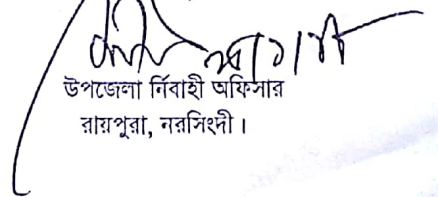 উপজেলা র্নিবাহী অফিসার
রায়পুরা, নরসিংদী।